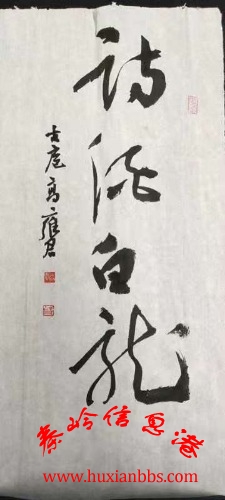 诗白龙
古扈高雍君
秦岭信息港
www.huxianbbs.com